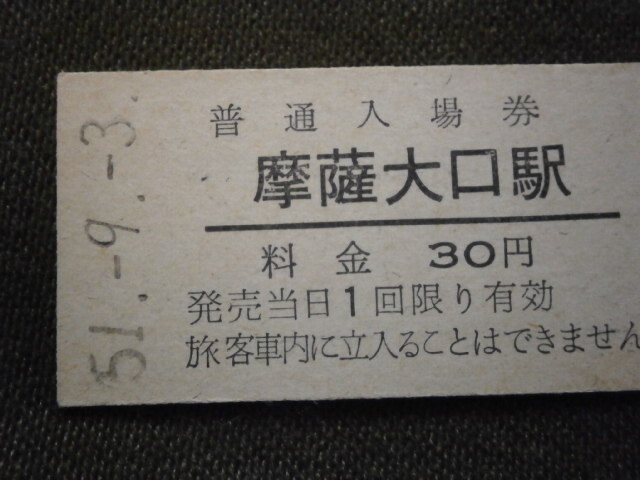 51.-9.-3.
普通入場券
摩薩大口駅
料金 30円
発売当日1回限り有効
旅客車内に立入ることはできません